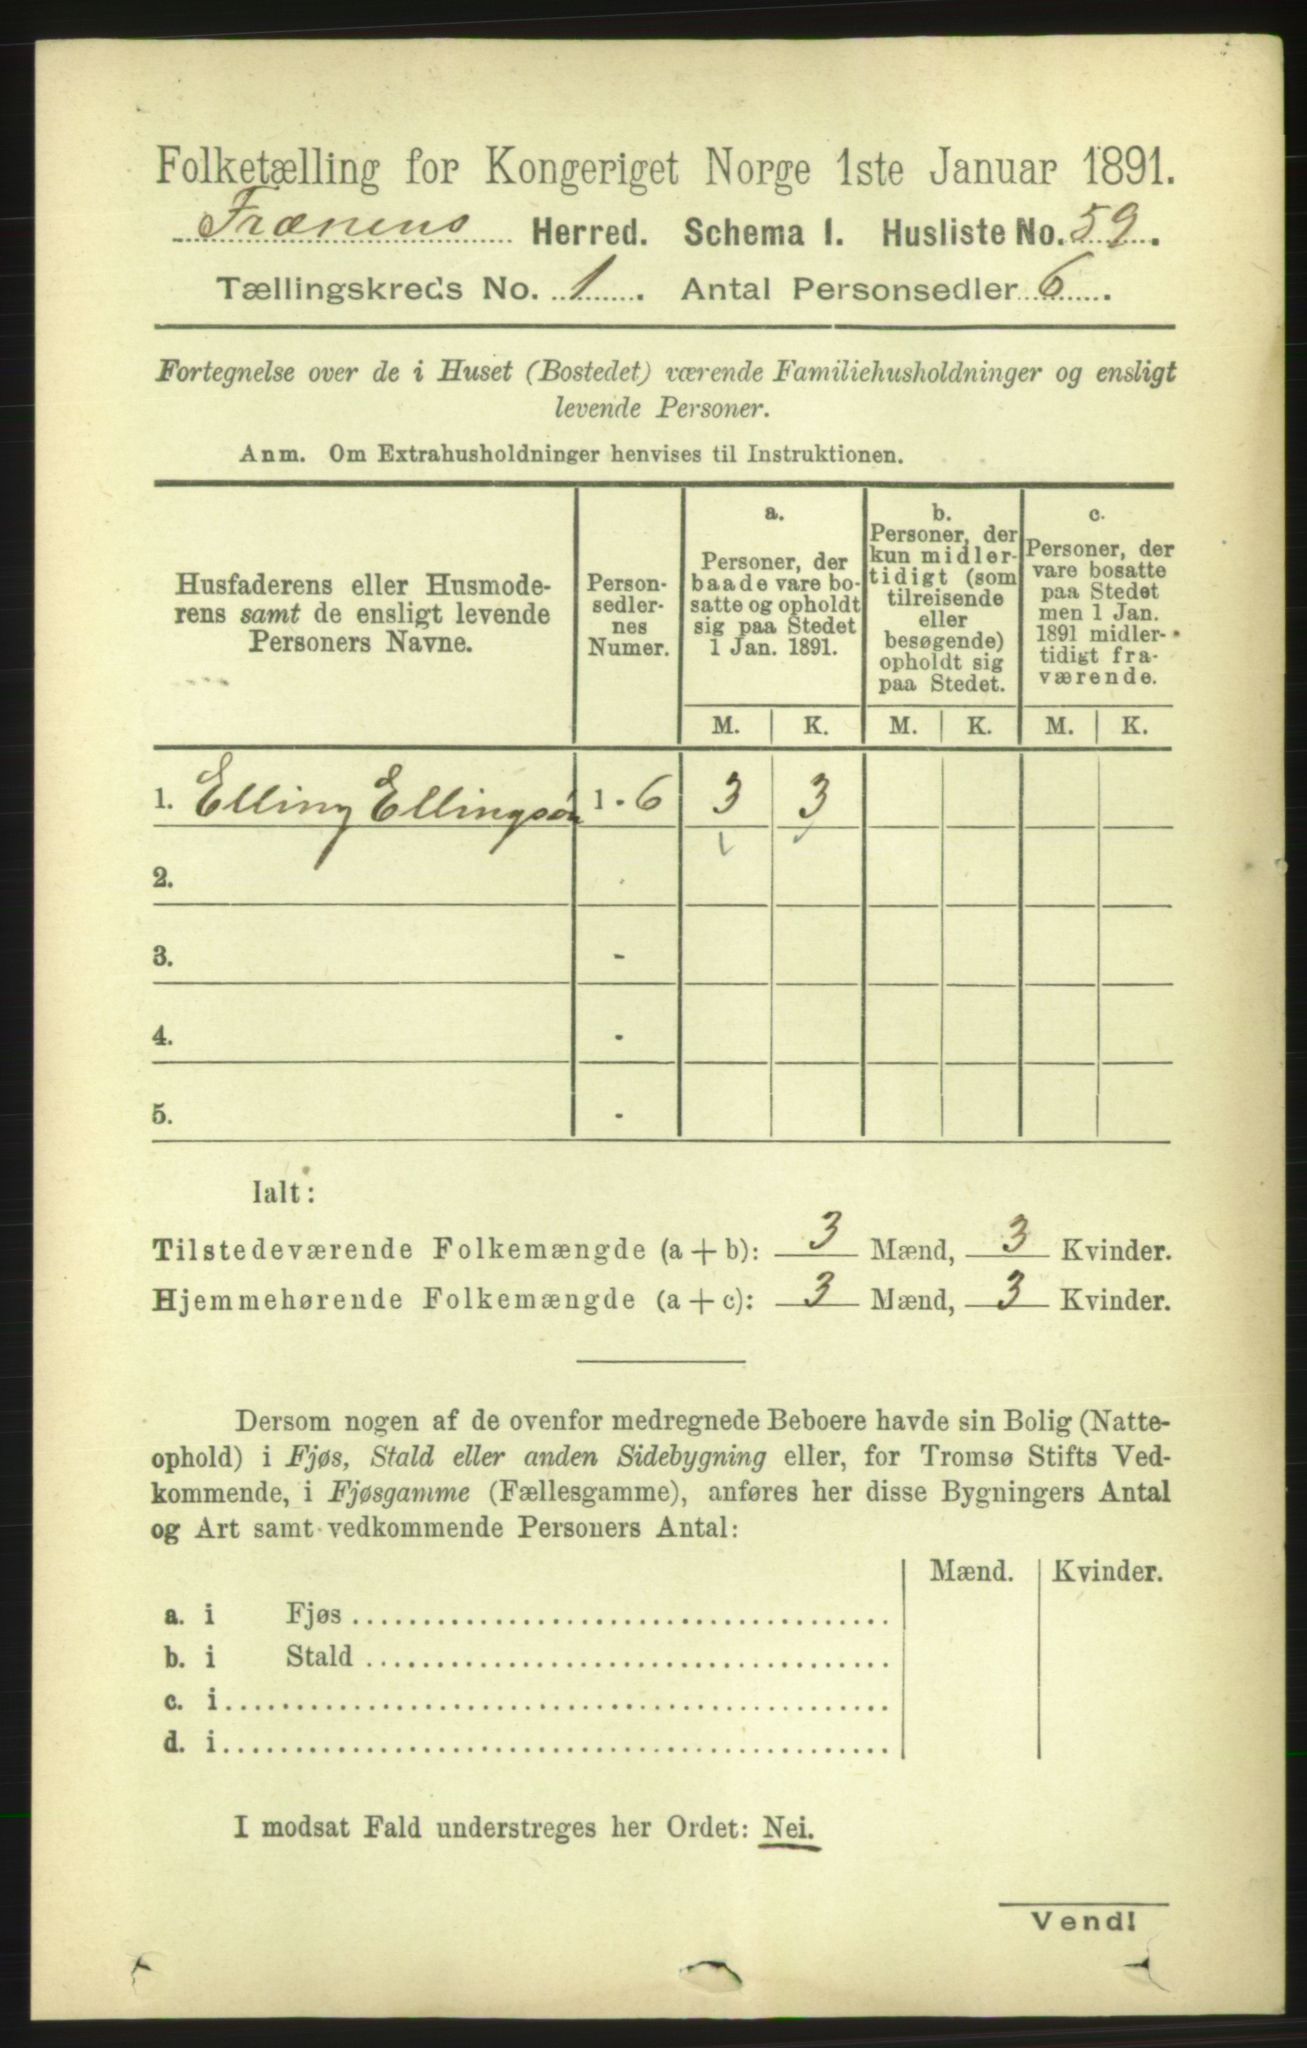 Folketælling for Kongeriget Norge 1ste Januar 1891.
Frænens Herred. Schema I. Husliste No. 59.
Tællingskreds No. 1. Antal Personsedler 6.
Fortegnelse over de i Huset (Bostedet) værende Familiehusholdninger og ensligt
levende Personer.
Anm. Om Extrahusholdninger henvises til Instruktionen.
Husfaderens eller Husmode-
rens samt de ensligt levende
Personers Navne.
Person-
sedler-
nes
Numer.
a.
Personer, der
baade vare bo-
satte og opholdt
sig paa Stedet
1 Jan. 1891.
b.
Personer, der
kun midler-
tidigt (som
tilreisende
eller
besøgende)
opholdt sig
paa Stedet.
c.
Personer, der
vare bosatte
paa Stedet
men 1 Jan.
1891 midler-
tidigt fra-
værende.
M. K. M. K. M. K.
1. Elling Ellingsøn 1 - 6 3 3
2.
3. -
4. -
5. -
Ialt:
Tilstedeværende Folkemængde (a + b): 3 Mænd, 3 Kvinder.
Hjemmehørende Folkemængde (a + c): 3 Mænd, 3 Kvinder.
Dersom nogen af de ovenfor medregnede Beboere havde sin Bolig (Natte-
ophold) i Fjøs, Stald eller anden Sidebygning eller, for Tromsø Stifts Ved-
kommende, i Fjøsgamme (Fællesgamme), anføres her disse Bygningers Antal
og Art samt vedkommende Personers Antal:
Mænd. Kvinder.
a. i Fjøs
b. i Stald
c. i
d. i
I modsat Fald understreges her Ordet: Nei.
Vend!